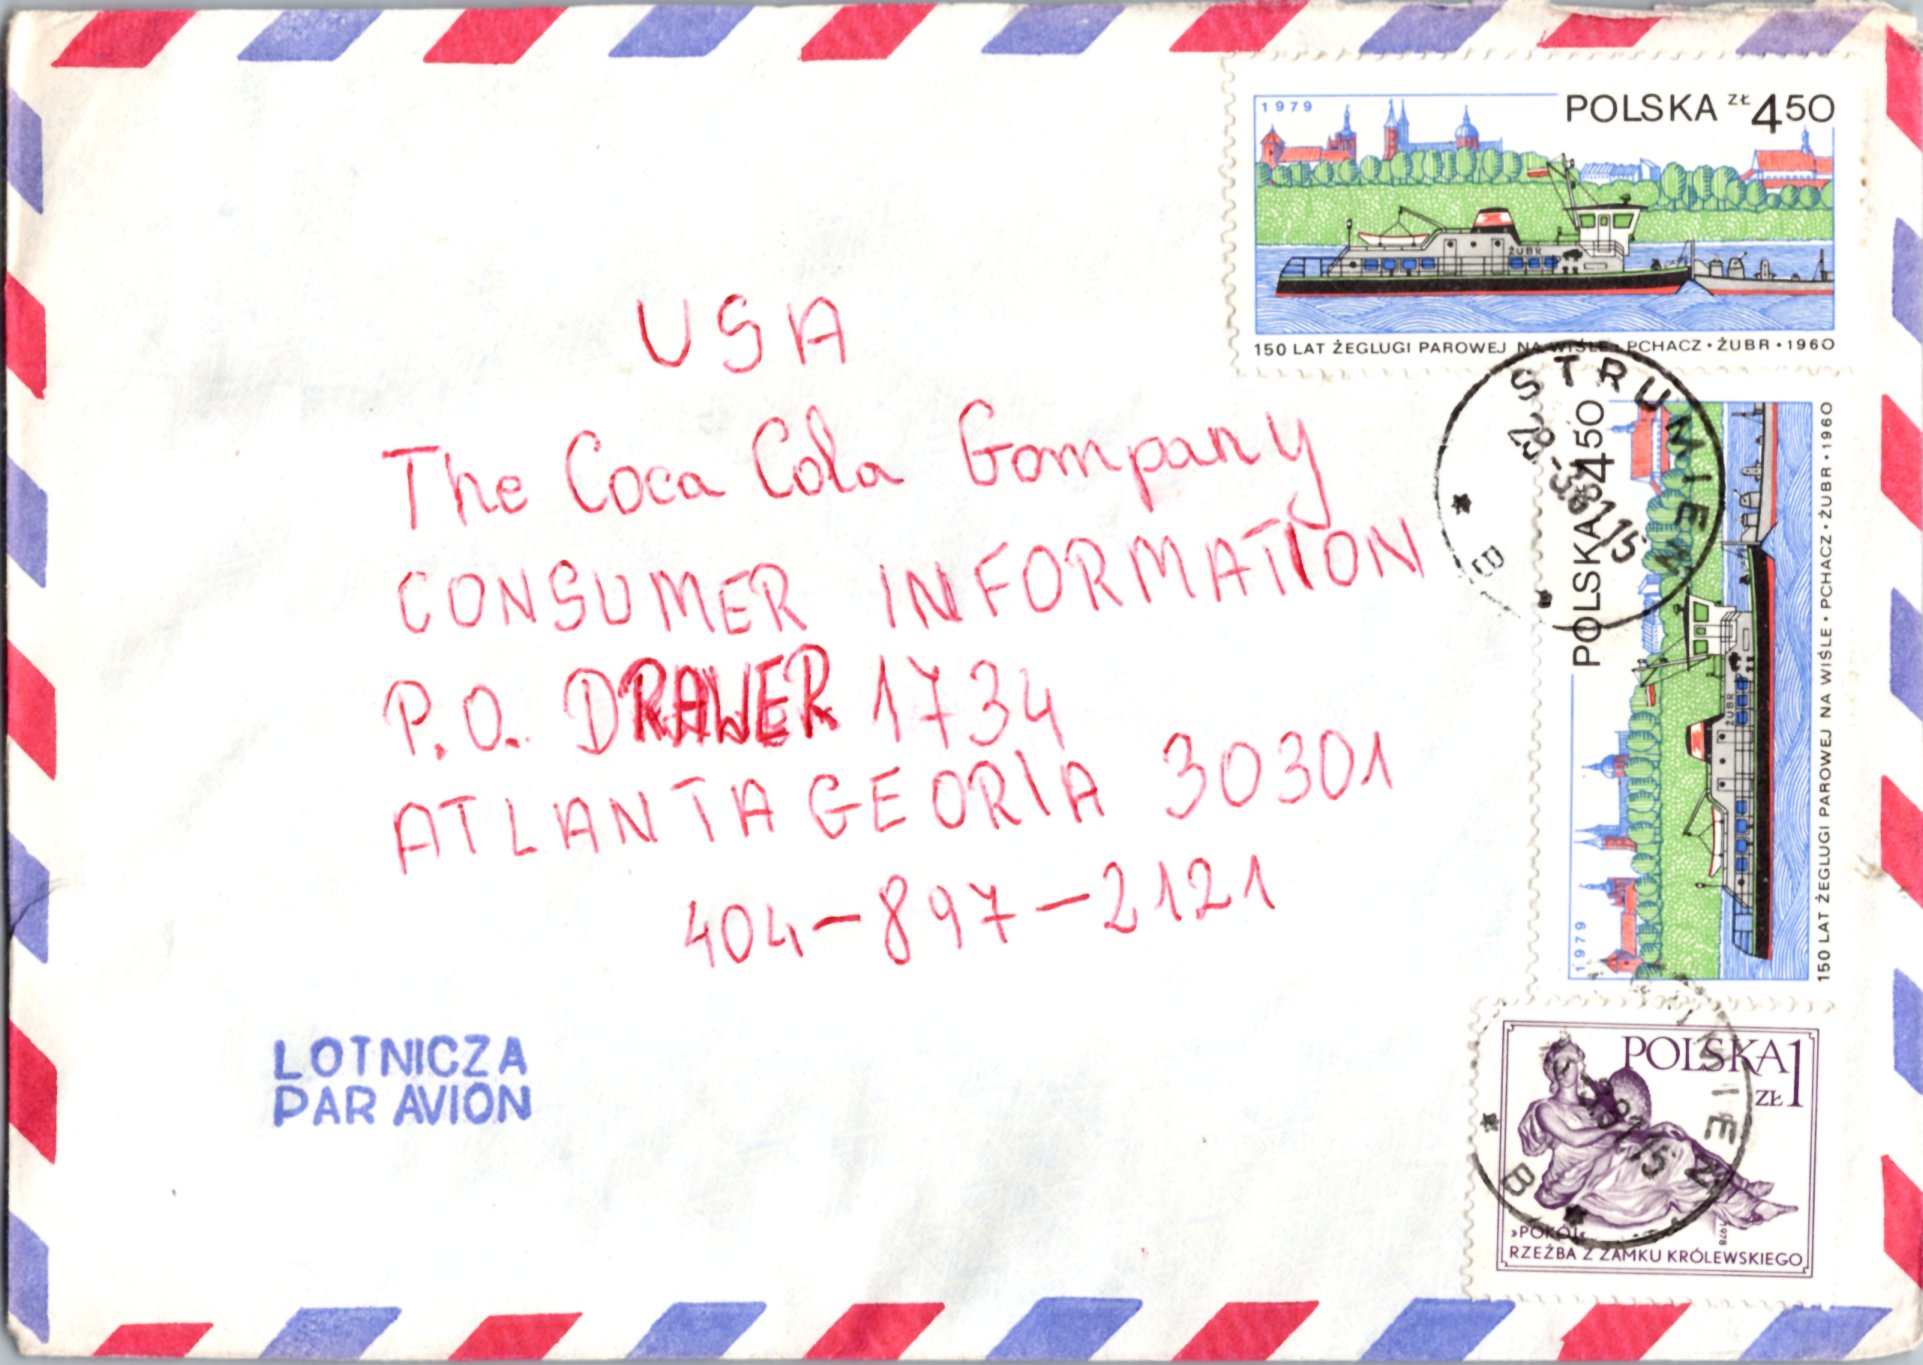 1979
POLSKA ZŁ 450
ŻUBR
150 LAT ŻEGLUGI PAROWEJ NA WIŚLE • PCHACZ • ŻUBR • 1960
USA
The Coca Cola Gompany
CONSUMER INFORMATION
P.O. DRAWER 1734
ATLANTA GEORIA 30301
404-897-2121
LOTNICZA
PAR AVION
STRUMIEŃ
B
POLSKA 450
1979
ŻUBR
150 LAT ŻEGLUGI PAROWEJ NA WIŚLE • PCHACZ • ŻUBR • 1960
POLSKA 1
ZŁ
B
»POKÓJ«
1978
RZEŹBA Z ZAMKU KRÓLEWSKIEGO